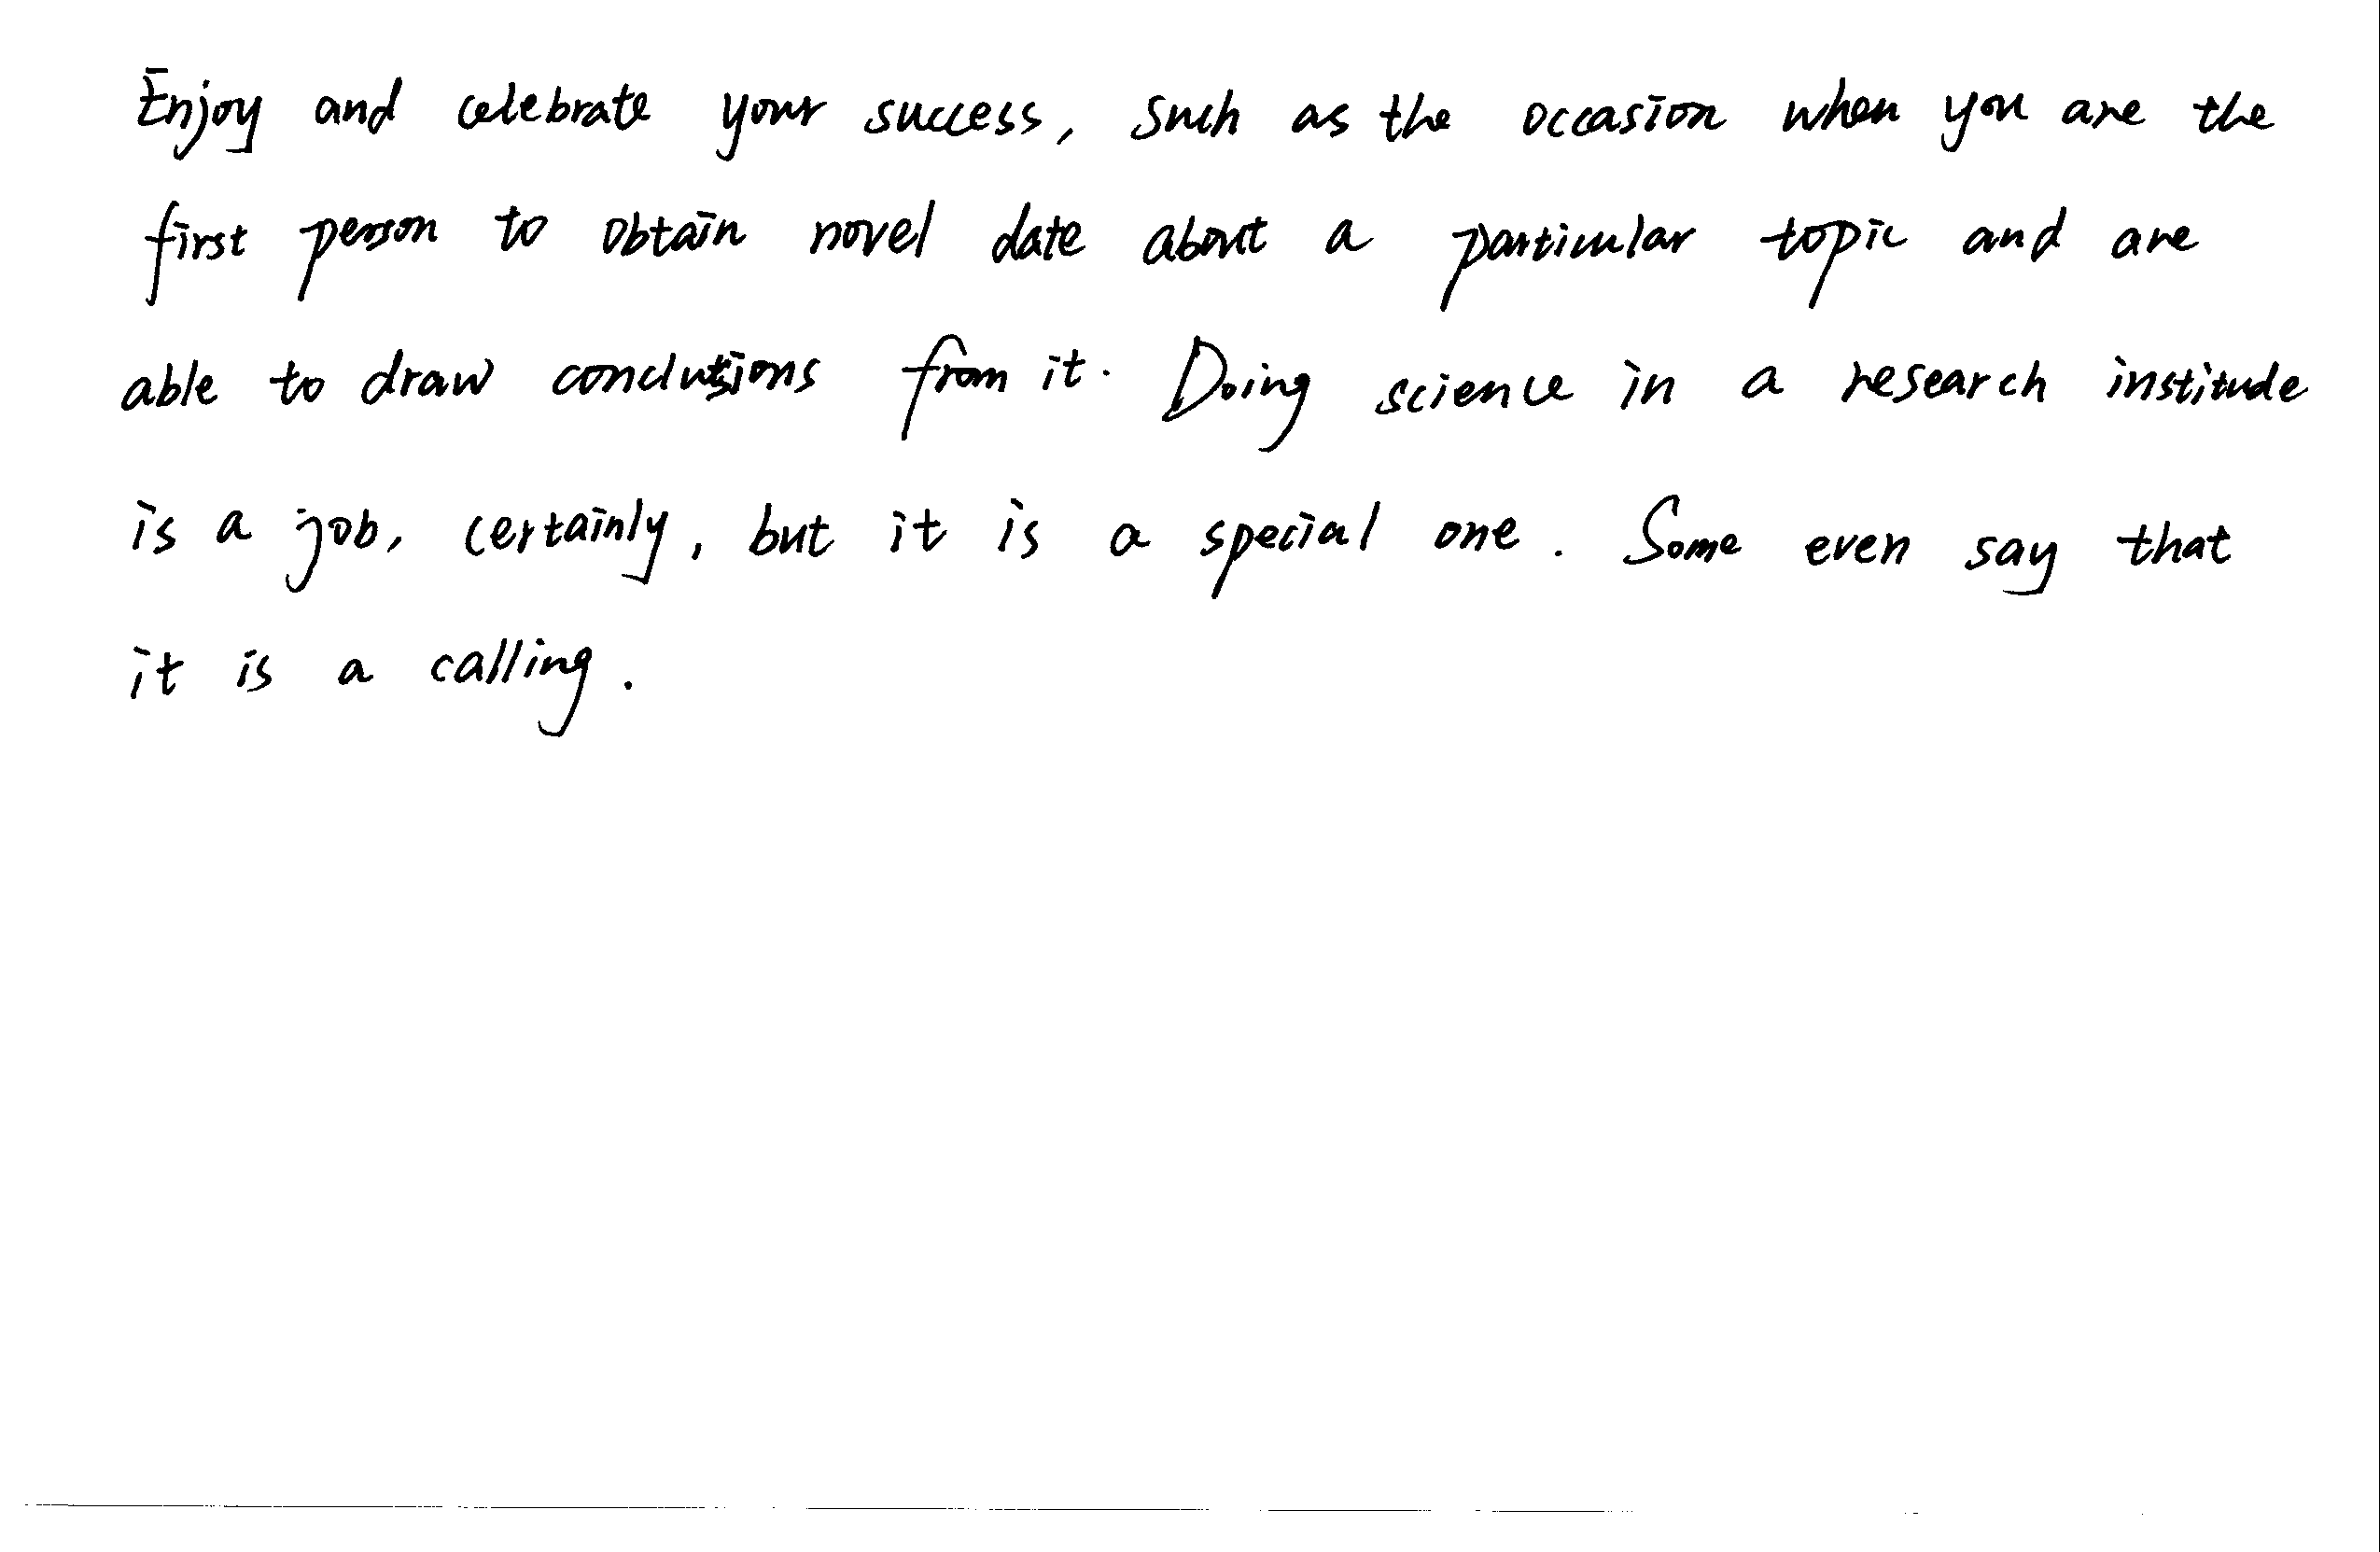 Enjoy and celebrate your success, such as the occasion when you are the
first person to obtain novel date about a particular topic and are
able to draw conclusions from it. Doing science in a research institude
is a job, certainly, but it is a special one. Some even say that
it is a calling.